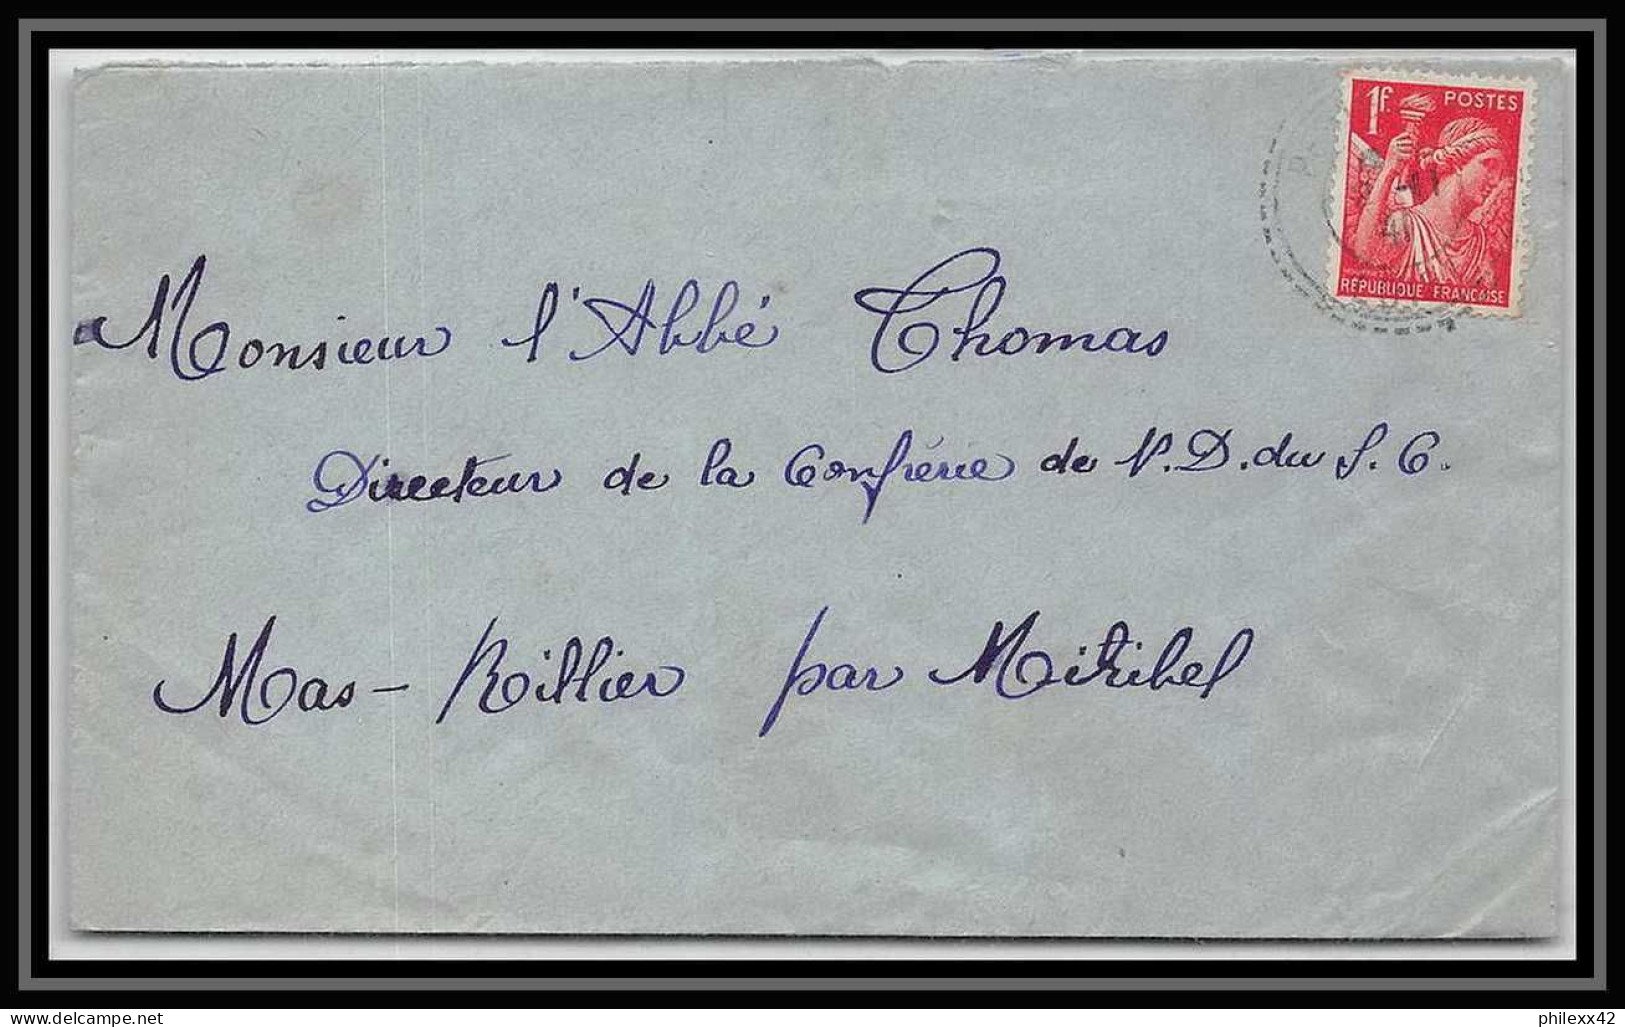 1F. POSTES
RÉPUBLIQUE FRANÇAISE
41
Monsieur l'Abbé Thomas
Directeur de la Confrérie de N.D. du S.C.
Mas-Rillier par Miribel
delcampe.net
philexx42